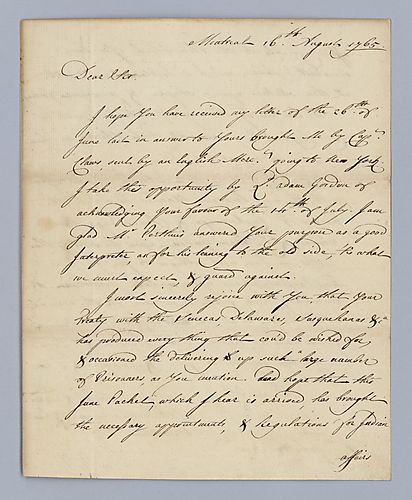 Montreal 16.th August 1765.
Dear Sir
I hope You have received my letter of the 26.th of
June last in answer to Yours brought Me by Cap.n
Claus, sent by an English Merc.t going to New York,
I take this opportunity by L.d Adam Gordon of
acknowledging Your favour of the 14.th of July. I am
glad M.r Perthuis answered Your purpose as a good
Interpreter as for his leaning to the old side, tis what
we must expect, & guard against.
I most sincerely rejoice with You, that Your
treaty with the Senecas Delawares, Susquehanas &c.a
has produced every thing that could be wished for,
& occasioned the delivering up such large number
of Prisoners, as You mention. And hope that this
June Packet, which I hear is arrived, has brought
the necessary appointments, & Regulations for Indian
affairs